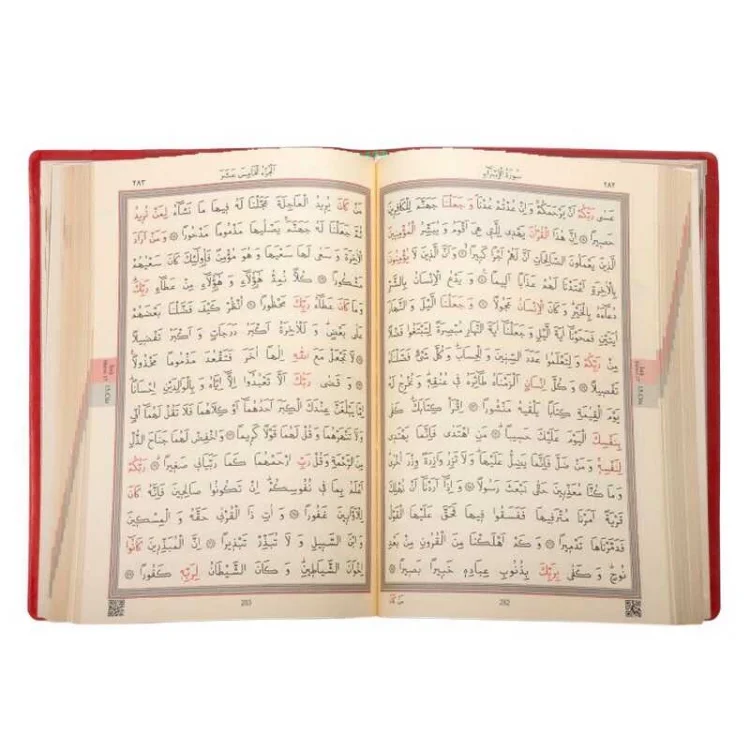 ٢٨٢
سورة الإسراء
عَسٰى رَبُّكُمْ اَنْ يَرْحَمَكُمْ وَ اِنْ عُدْتُمْ عُدْنَا وَ جَعَلْنَا جَهَنَّمَ لِلْكَافِرٖينَ
حَصٖيرًا اِنَّ هٰذَا الْقُرْاٰنَ يَهْدٖى لِلَّتٖى هِىَ اَقْوَمُ وَ يُبَشِّرُ الْمُؤْمِنٖينَ
الَّذٖينَ يَعْمَلُونَ الصَّالِحَاتِ اَنَّ لَهُمْ اَجْرًا كَبٖيرًا وَ اَنَّ الَّذٖينَ لَا يُؤْمِنُونَ
بِالْاٰخِرَةِ اَعْتَدْنَا لَهُمْ عَذَابًا اَلٖيمًا وَ يَدْعُ الْاِنْسَانُ بِالشَّرِّ
دُعَاءَهُ بِالْخَيْرِ وَ كَانَ الْاِنْسَانُ عَجُولًا وَ جَعَلْنَا الَّيْلَ وَ النَّهَارَ
اٰيَتَيْنِ فَمَحَوْنَا اٰيَةَ الَّيْلِ وَ جَعَلْنَا اٰيَةَ النَّهَارِ مُبْصِرَةً لِتَبْتَغُوا فَضْلًا
مِنْ رَبِّكُمْ وَ لِتَعْلَمُوا عَدَدَ السِّنٖينَ وَ الْحِسَابَ وَ كُلَّ شَىْءٍ فَصَّلْنَاهُ
تَفْصٖيلًا وَ كُلَّ اِنْسَانٍ اَلْزَمْنَاهُ طَائِرَهُ فٖى عُنُقِهٖ وَ نُخْرِجُ لَهُ
يَوْمَ الْقِيٰمَةِ كِتَابًا يَلْقٰيهُ مَنْشُورًا اِقْرَأْ كِتَابَكَ كَفٰى
بِنَفْسِكَ الْيَوْمَ عَلَيْكَ حَسٖيبًا مَنِ اهْتَدٰى فَاِنَّمَا يَهْتَدٖى
لِنَفْسِهٖ وَ مَنْ ضَلَّ فَاِنَّمَا يَضِلُّ عَلَيْهَا وَ لَا تَزِرُ وَازِرَةٌ وِزْرَ اُخْرٰى
وَ مَا كُنَّا مُعَذِّبٖينَ حَتّٰى نَبْعَثَ رَسُولًا وَ اِذَا اَرَدْنَا اَنْ نُهْلِكَ
قَرْيَةً اَمَرْنَا مُتْرَفٖيهَا فَفَسَقُوا فٖيهَا فَحَقَّ عَلَيْهَا الْقَوْلُ
فَدَمَّرْنَاهَا تَدْمٖيرًا وَ كَمْ اَهْلَكْنَا مِنَ الْقُرُونِ مِنْ بَعْدِ
نُوحٍ وَ كَفٰى بِرَبِّكَ بِذُنُوبِ عِبَادِهٖ خَبٖيرًا بَصٖيرًا
مَنْ كَانَ
282
الجزء الخامس عشر
٢٨٣
مَنْ كَانَ يُرٖيدُ الْعَاجِلَةَ عَجَّلْنَا لَهُ فٖيهَا مَا نَشَاءُ لِمَنْ نُرٖيدُ
ثُمَّ جَعَلْنَا لَهُ جَهَنَّمَ يَصْلٰيهَا مَذْمُومًا مَدْحُورًا وَ مَنْ اَرَادَ
الْاٰخِرَةَ وَ سَعٰى لَهَا سَعْيَهَا وَ هُوَ مُؤْمِنٌ فَاُولٰئِكَ كَانَ سَعْيُهُمْ
مَشْكُورًا كُلًّا نُمِدُّ هٰؤُلَاءِ وَ هٰؤُلَاءِ مِنْ عَطَاءِ رَبِّكَ
وَ مَا كَانَ عَطَاءُ رَبِّكَ مَحْظُورًا اُنْظُرْ كَيْفَ فَضَّلْنَا بَعْضَهُمْ
عَلٰى بَعْضٍ وَ لَلْاٰخِرَةُ اَكْبَرُ دَرَجَاتٍ وَ اَكْبَرُ تَفْضٖيلًا
لَا تَجْعَلْ مَعَ اللّٰهِ اِلٰهًا اٰخَرَ فَتَقْعُدَ مَذْمُومًا مَخْذُولًا
وَ قَضٰى رَبُّكَ اَلَّا تَعْبُدُوا اِلَّا اِيَّاهُ وَ بِالْوَالِدَيْنِ اِحْسَانًا
اِمَّا يَبْلُغَنَّ عِنْدَكَ الْكِبَرَ اَحَدُهُمَا اَوْ كِلَاهُمَا فَلَا تَقُلْ لَهُمَا اُفٍّ
وَ لَا تَنْهَرْهُمَا وَ قُلْ لَهُمَا قَوْلًا كَرٖيمًا وَ اخْفِضْ لَهُمَا جَنَاحَ الذُّلِّ
مِنَ الرَّحْمَةِ وَ قُلْ رَبِّ ارْحَمْهُمَا كَمَا رَبَّيَانٖى صَغٖيرًا رَبُّكُمْ
اَعْلَمُ بِمَا فٖى نُفُوسِكُمْ اِنْ تَكُونُوا صَالِحٖينَ فَاِنَّهُ كَانَ
لِلْاَوَّابٖينَ غَفُورًا وَ اٰتِ ذَا الْقُرْبٰى حَقَّهُ وَ الْمِسْكٖينَ
وَ ابْنَ السَّبٖيلِ وَ لَا تُبَذِّرْ تَبْذٖيرًا اِنَّ الْمُبَذِّرٖينَ كَانُوا
اِخْوَانَ الشَّيَاطٖينِ وَ كَانَ الشَّيْطَانُ لِرَبِّهٖ كَفُورًا
283